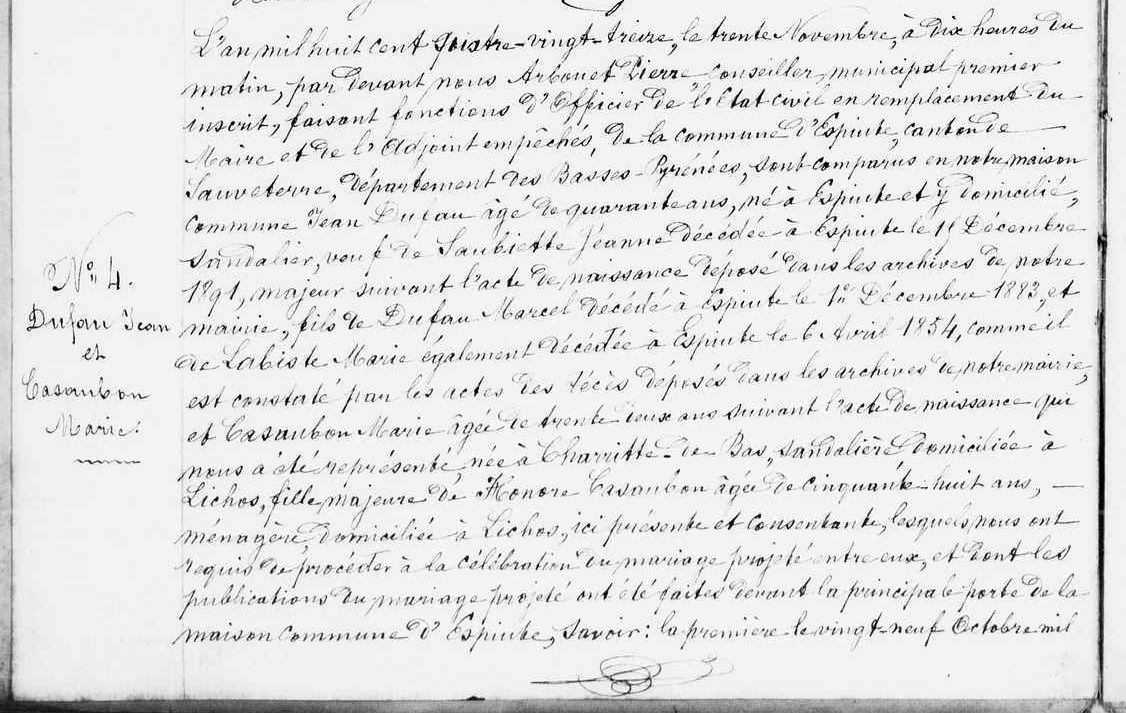 L'an mil huit cent quatre-vingt-treize, le trente Novembre, à dix heures du
matin, par devant nous Arbouet Pierre conseiller municipal premier
inscrit, faisant fonctions d'Officier de l'Etat civil en remplacement du
Maire et de l'Adjoint empêchés, de la commune d'Espiute, canton de
Sauveterre, département des Basses-Pyrénées, sont comparus en notre maison
commune Jean Dufau âgé de quarante ans, né à Espiute et y domicilié,
sandalier, veuf de Saubiette Jeanne décédée à Espiute le 11 Décembre
1891, majeur suivant l'acte de naissance déposé dans les archives de notre
mairie, fils de Dufau Marcel décédé à Espiute le 1er Décembre 1883, et
de Labiste Marie également décédée à Espiute le 6 Avril 1854, comme il
est constaté par les actes des décès déposés dans les archives de notre mairie,
N° 4.
Dufau Jean
et
Casaubon
Marie.
et Casaubon Marie âgée de trente deux ans suivant l'acte de naissance qui
nous a été représenté, née à Charritte-de-Bas, sandalière domiciliée à
Lichos, fille majeure de Honore Casaubon âgée de cinquante-huit ans,
ménagère domiciliée à Lichos, ici présente et consentante, lesquels nous ont
requis de procéder à la célébration du mariage projeté entre eux, et dont les
publications du mariage projeté ont été faites devant la principale porte de la
maison commune d'Espiute, savoir: la première le vingt-neuf Octobre mil